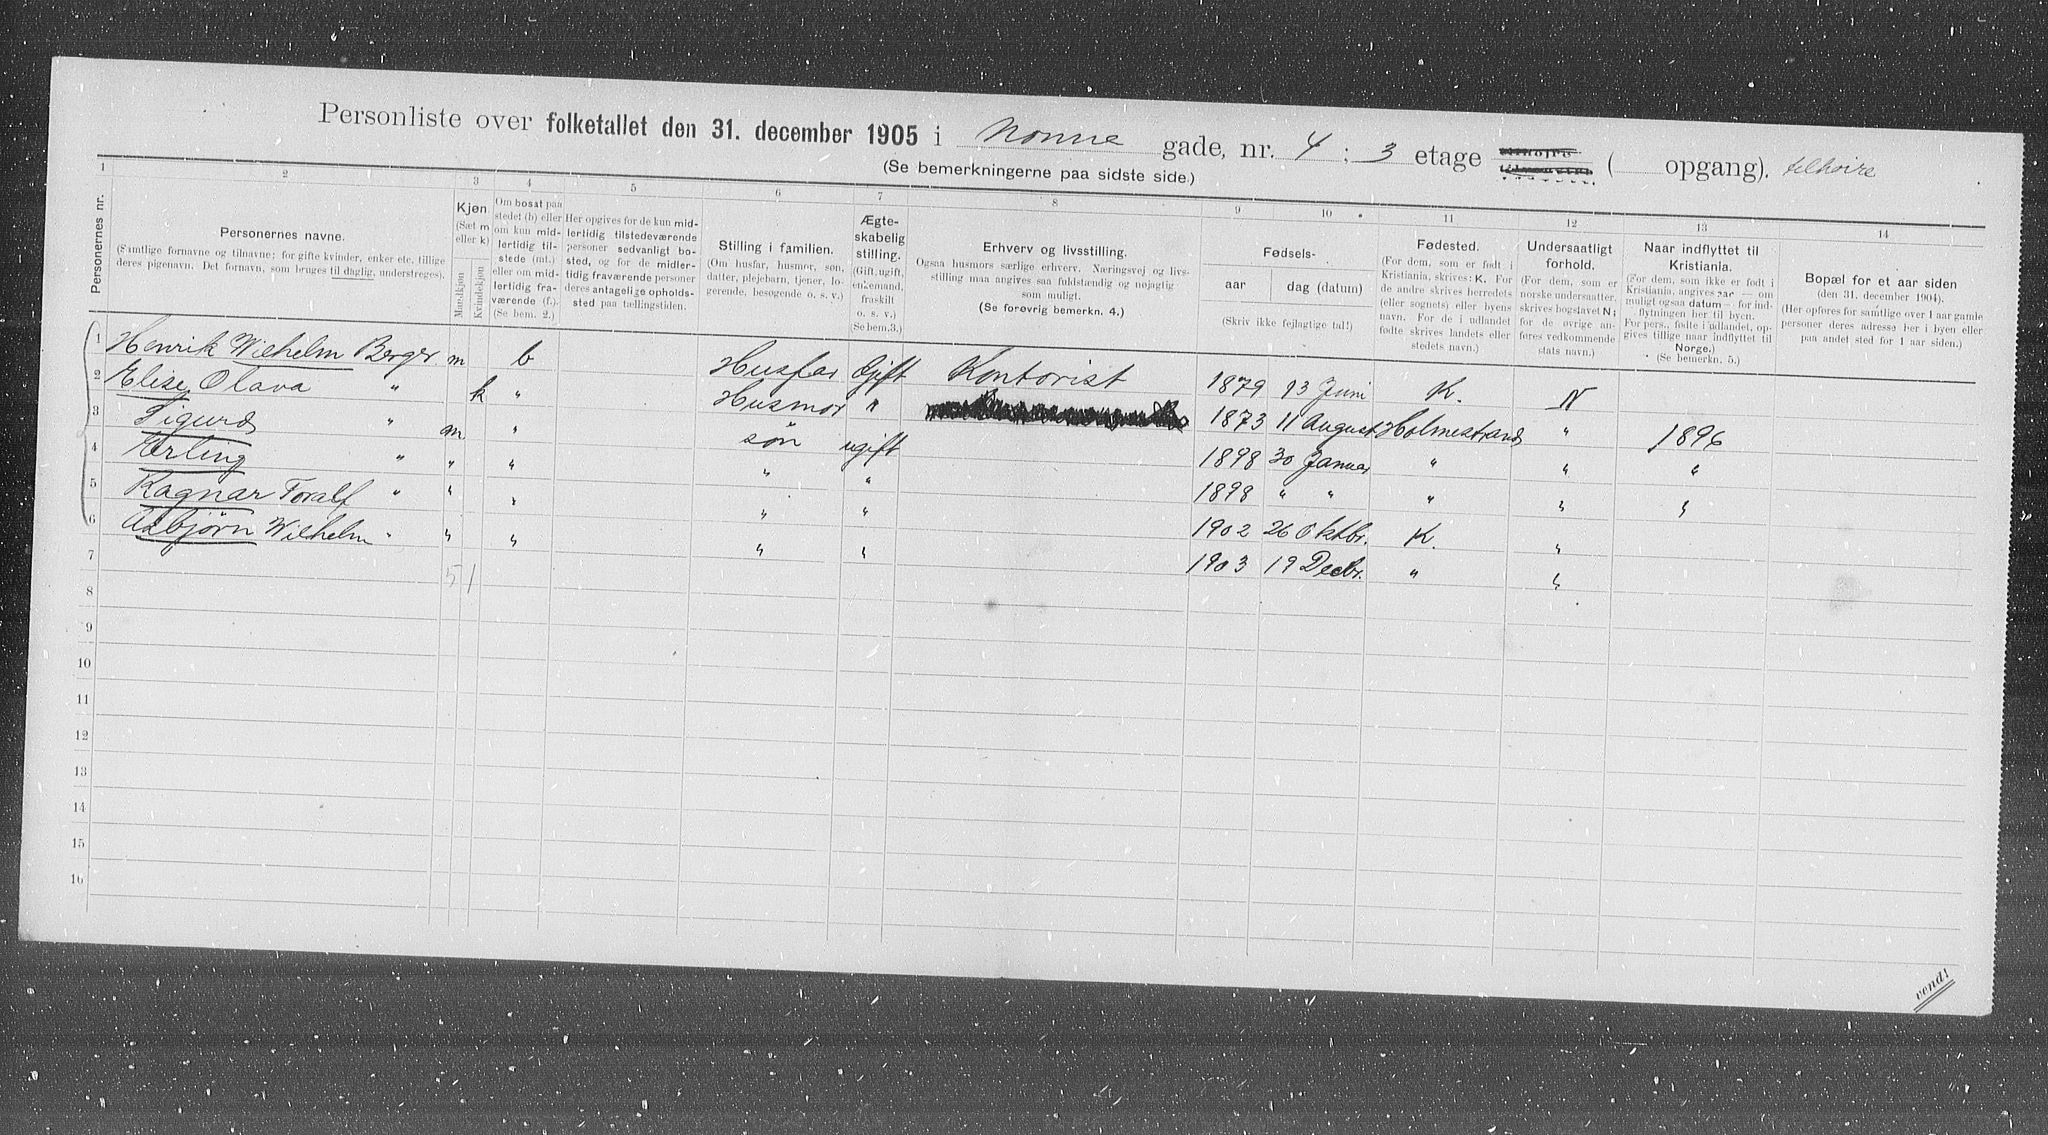 Personliste over folketallet den 31. december 1905 i Nonne gade, nr. 4 ; 3 etage ( opgang). tilhoire
(Se bemerkningerne paa sidste side.)
1 2 3 4 5 6 7 8 9 10 11 12 13 14
Personernes nr.
Personernes navne.
(Samtlige fornavne og tilnavne; for gifte kvinder, enker etc. tillige
deres pigenavn. Det fornavn, som bruges til daglig, understreges).
Kjøn
(Sæt m
eller k)
Mandkjøn
Kvindekjøn
Om bosat paa
stedet (b) eller
om kun mid-
lertidig til-
stede (mt.)
eller om mid-
lertidig fra-
værende (f.).
(Se bem. 2.)
Her opgives for de kun mid-
lertidig tilstedeværende
personer sedvanligt bo-
sted, og for de midler-
tidig fraværende personer
deres antagelige opholds-
sted paa tællingstiden.
Stilling i familien.
(Om husfar, husmor, søn,
datter, plejebarn, tjener, lo-
gerende, besøgende o. s. v.)
Ægte-
skabelig
stilling.
(Gift, ugift,
enkemand,
fraskilt
o. s. v.)
(Se bem.3.)
Erhverv og livsstilling.
Ogsaa husmors særlige erhverv. Næringsvej og livs-
stilling maa angives saa fuldstændig og nøjagtig
som muligt.
(Se forøvrig bemerkn. 4.)
Fødsels-
aar dag (datum)
(Skriv ikke fejlagtige tal!)
Fødested.
(For dem, som er født i
Kristiania, skrives: K. For
de andre skrives herredets
(eller sognets) eller byens
navn. For de i udlandet
fødte skrives landets eller
stedets navn.)
Undersaatligt
forhold.
(For dem, som er
norske undersaatter,
skrives bogstavet N;
for de øvrige an-
føres vedkommende
stats navn.)
Naar indflyttet til
Kristiania.
(For dem, som ikke er født i
Kristiania, angives aar — om
muligt ogsaa datum — for ind-
flytningen her til byen.
For pers., fødte i udlandet, op-
gives tillige naar indflyttet til
Norge.)
(Se bemerkn. 5.)
Bopæl for et aar siden
(den 31. december 1904).
(Her opføres for samtlige over 1 aar gamle
personer deres adresse her i byen eller
paa andet sted for 1 aar siden.)
1 Henrik Wilhelm Berger m b Husfar Gift Kontorist 1879 13 Juni K. N
2 Elise Olava " k " Husmor " 1873 11 August Holmestrand " 1896
3 Sigurd " m " søn ugift 1898 30 Januar " " "
4 Erling " " " " " 1898 " " " " "
5 Ragnar Toralf " " " " " 1902 26 Oktbr. K. "
6 Asbjørn Wilhelm " " " " " 1903 19 Decbr. " "
7 5 1
8
9
10
11
12
13
14
15
16
vend!